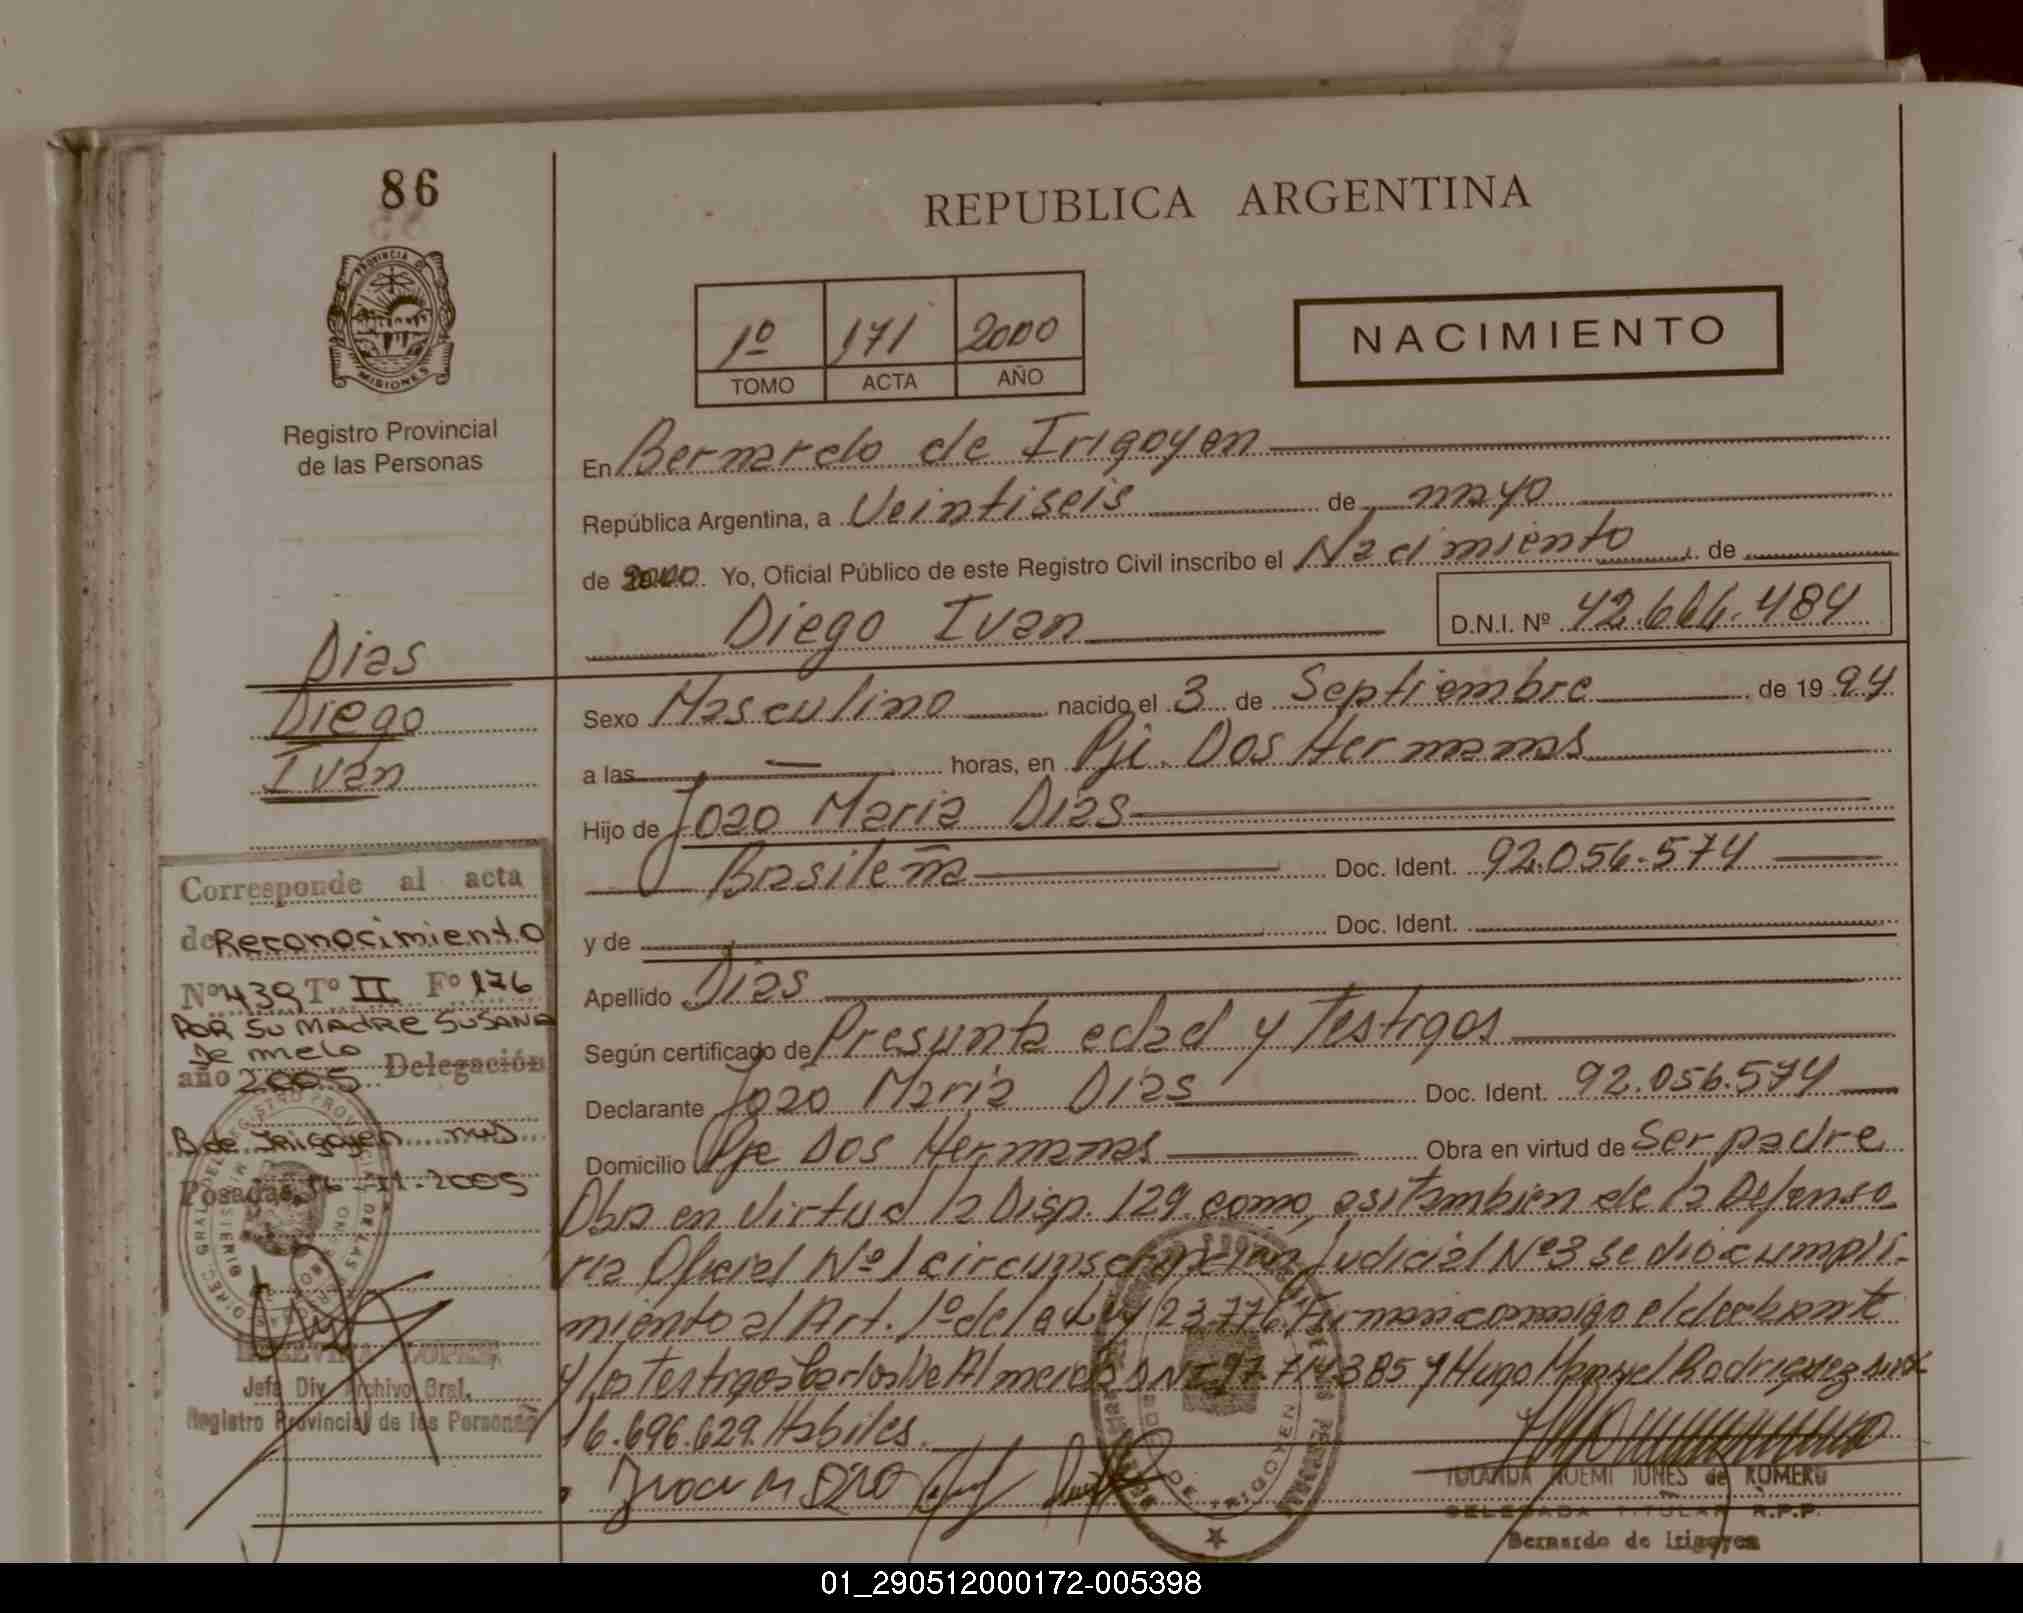 86
PROVINCIA DE
MISIONES
Registro Provincial
de las Personas
REPUBLICA ARGENTINA
1º 171 2000
TOMO ACTA AÑO
NACIMIENTO
En Bernardo de Irigoyen
República Argentina, a Veintiseis de mayo
de 2000. Yo, Oficial Público de este Registro Civil inscribo el Nacimiento, de
Diego Ivan
D.N.I. Nº 42.606.484
Dias
Diego
Ivan
Sexo Masculino nacido el 3 de Septiembre de 1994
a las — horas, en Pje. Dos Hermanas
Hijo de Joao Maria Dias
Brasileña Doc. Ident. 92.056.574
y de Doc. Ident.
Apellido Dias
Según certificado de Presunta edad y Testigos
Declarante Joao Maria Dias Doc. Ident. 92.056.574
Domicilio Pje Dos Hermanas Obra en virtud de Ser padre
Obra en virtud la Disp. 129. como asitambien de la Defenso
ria Oficial Nº 1 circunscripcion Judicial Nº 3 se dio cumpli-
miento al Art. 1º de la Ley 23.776. Firman conmigo el declarante
y los testigos Carlos De Almeida DNI y Hugo Manuel Rodriguez
16.696.629. Habiles.
Corresponde al acta
de Reconocimiento
Nº 439 Tº II Fº 176
POR SU MADRE SUSANA
De melo
año 2005 Delegación
B de Irigoyen mns
Posadas 16-11-2005
LOPEZ
Jefa Div. Archivo Gral.
Registro Provincial de las Personas
DE IRIGOYEN
YOLANDA NOEMI JUNES de ROMERO
DELEGADA TITULAR R.P.P.
Bernardo de Irigoyen
01_290512000172-005398